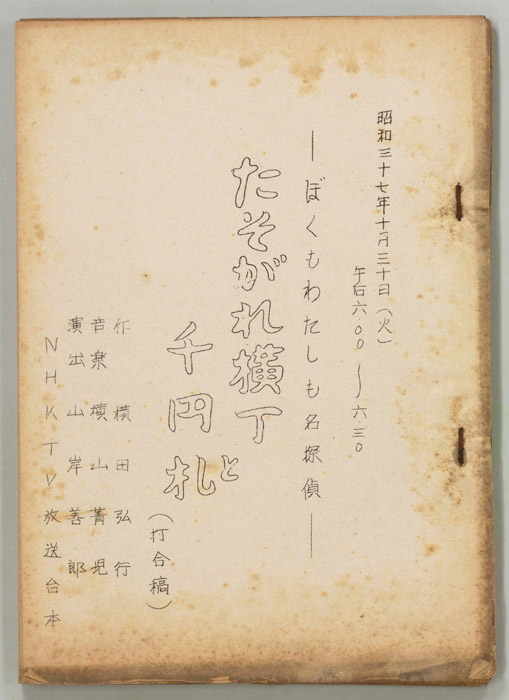 昭和三十七年十月三十日（火）
午后六.〇〇〜六.三〇
―ぼくもわたしも名探偵―
たそがれ横丁と
千円札
（打合稿）
作 横田弘行
音楽 横山菁児
演出 山岸善郎
NHKTV放送台本